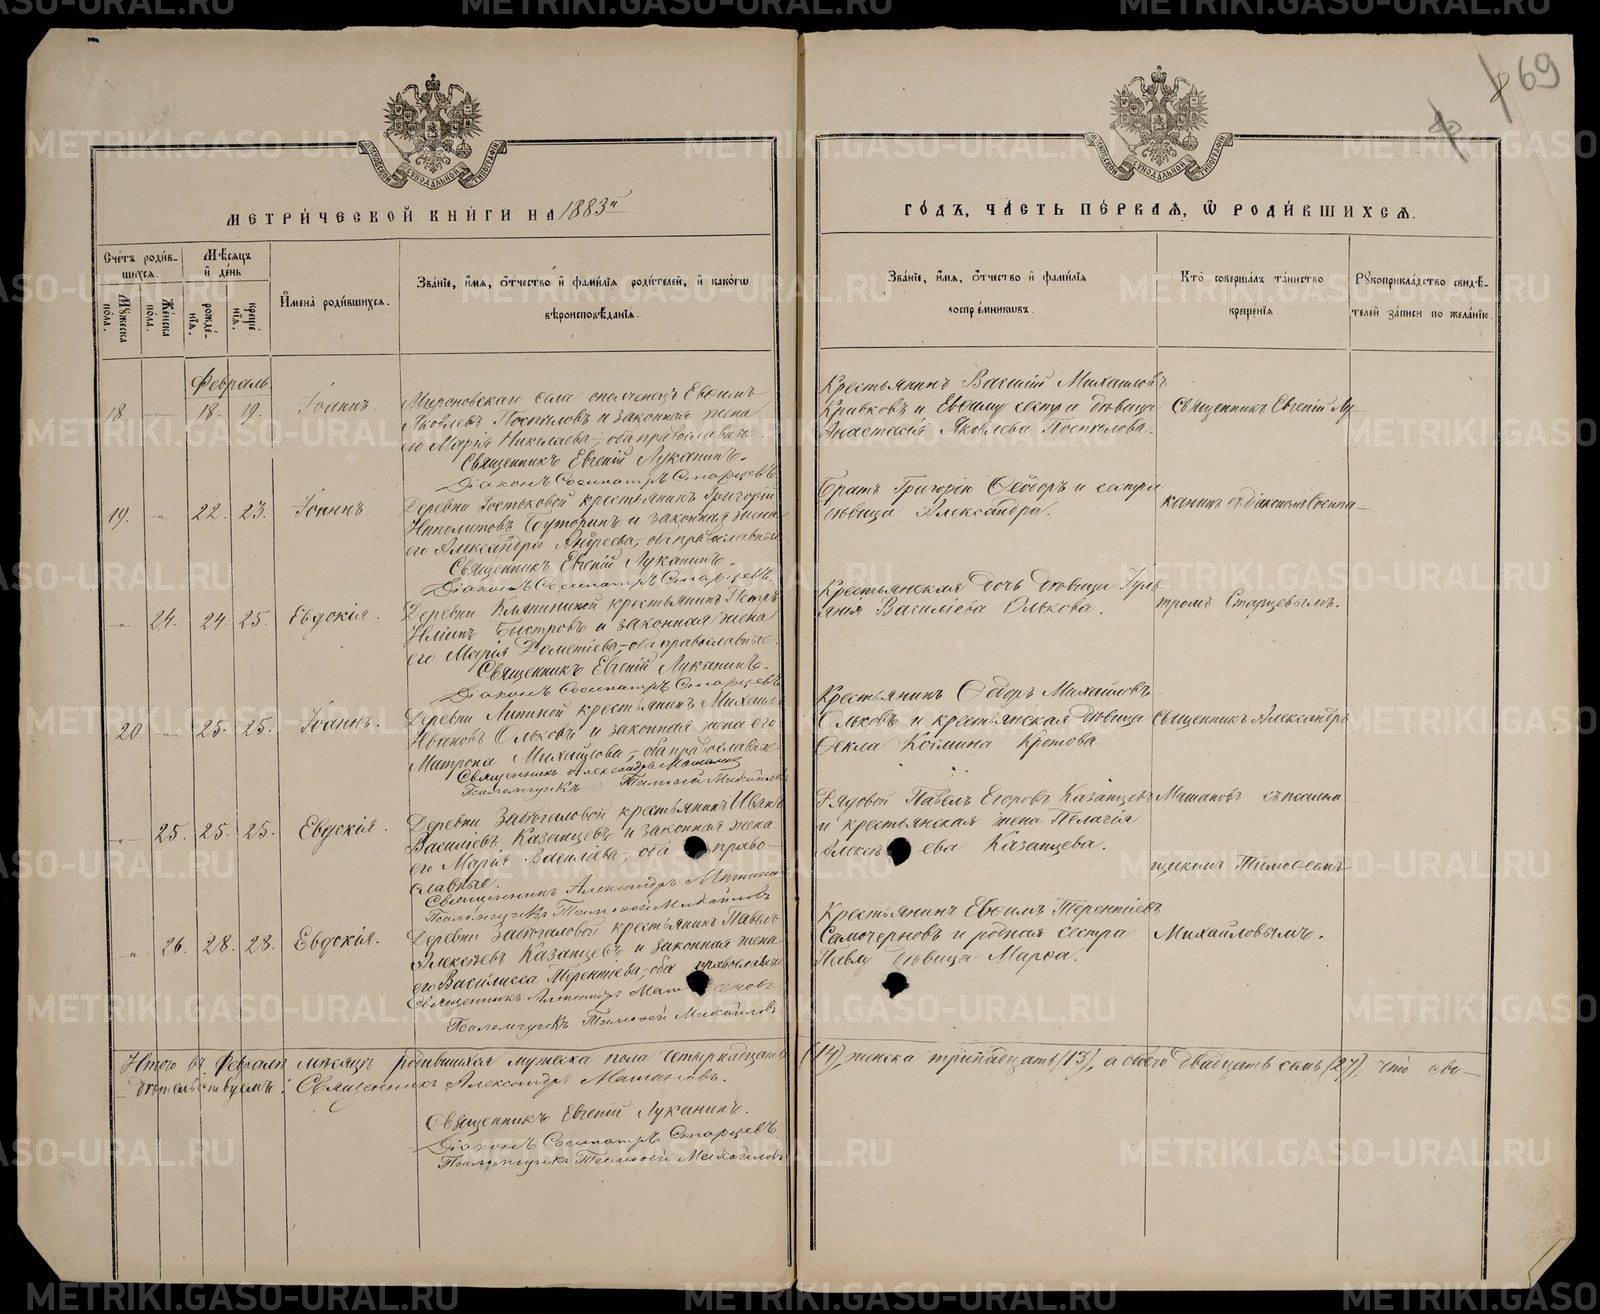 69
МЕТРИ́ЧЕСКОЙ КНИ́ГИ НА 1883й
ГО́ДЪ, ЧА́СТЬ ПЕ́РВАѦ, Ѽ РОДИ́ВШИХСѦ.
Сче́тъ роди́в-
шихсѧ.
Мѣ́сѧцъ
и҆ де́нь
Мꙋжеска по́ла.
Же́нска по́ла.
рожде́-
нїѧ.
креще́
нїѧ.
И҆мена̀ роди́вшихсѧ.
Зва́нїе, и҆́мѧ, ѻ҆́тчество и҆ фами́лїѧ роди́телей, и҆ како́гѡ
вѣроисповѣ́данїѧ.
Зва́нїе, и҆́мѧ, ѻ҆́тчество и҆ фами́лїѧ
воспрїе́мникѡвъ.
Кто̀ соверша́лъ та́инство
креще́нїѧ
Рꙋкоприкла́дство свидѣ́-
телей за́писи по жела́нїю.
Февраль
18. 18. 19. Іоаннъ
Мироновскаго села ополченецъ Евѳимъ
Яковлевъ Поспѣловъ и законная жена
его Марія Николаева, оба православные.
Священникъ Евгеній Луканинъ.
Діаконъ Сосипатръ Старцевъ.
Крестьянинъ Василій Михайловъ
Кривковъ и Евѳиму сестра дѣвица
Анастасія Яковлева Поспѣлова.
Священникъ Евгеній Лу-
19. 22. 23. Іоаннъ
Деревни Гостьковой крестьянинъ Григорій
Ипполитовъ и законная жена
его Александра Андреева, оба православные
Священникъ Евгеній Луканинъ.
Діаконъ Сосипатръ Старцевъ.
Братъ Григорію Ѳедоръ и сестра
дѣвица Александра.
канинъ съ діакономъ Сосипа-
24. 24. 25. Евдокія.
Деревни крестьянинъ Петръ
Ильинъ Быстровъ и законная жена
его Марія Дометіева, оба православные.
Священникъ Евгеній Луканинъ.
Діаконъ Сосипатръ Старцевъ.
Крестьянская дочь дѣвица Іулі
анія Василіева Олькова.
тромъ Старцевымъ.
20 25. 25. Іоаннъ.
Деревни Липиной крестьянинъ Михаилъ
Ивановъ Ольковъ и законная жена его
Матрона Михайлова, оба православные
Священникъ Александръ Матановъ
Псаломщикъ Тимоѳей Михайловъ
Крестьянинъ Ѳедоръ Михайловъ
Ольковъ и крестьянская дѣвица
Ѳекла Козмина Кротова.
Священникъ Александръ
25. 25. 25. Евдокія.
Деревни крестьянинъ Иванъ
Василіевъ Казанцевъ и законная жена
его Марія Василіева, оба право-
славные.
Священникъ Александръ Матановъ
Псаломщикъ Тимоѳей Михайловъ
Рядовой Павелъ Егоровъ Казанцевъ
и крестьянская жена Пелагія
Алексѣева Казанцева.
Матановъ съ псалом
щикомъ Тимоѳеемъ
26. 28. 28. Евдокія.
Деревни крестьянинъ Павелъ
Алексѣевъ Казанцевъ и законная жена
его Василисса Терентіева, оба православные
Священникъ Александръ Матановъ
Псаломщикъ Тимоѳей Михайловъ
Крестьянинъ Евѳимъ Терентіевъ
Самочерновъ и родная сестра
Павлу дѣвица Марѳа.
Михайловымъ.
Итого въ Февралѣ мѣсяцѣ родившихся мужеска пола четырнадцать (14), женска тринадцать (13), а обоего двадцать семь (27), что сви-
дѣтельствуемъ: Священникъ Александръ Матановъ.
Священникъ Евгеній Луканинъ.
Діаконъ Сосипатръ Старцевъ
Псаломщикъ Тимоѳей Михайловъ
METRIKI.GASO-URAL.RU